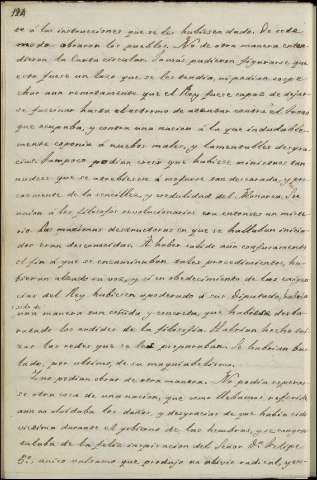 124
se á las instrucciones que se les hubiesen dado. De este
modo obraron los pueblos. No de otra manera enten-
dieron la Carta circular. Jamás pudieron figurarse que
esta fuese un lazo que se les tendia, ni podian sospe-
char aun remotamente que el Rey fuese capaz de dejar-
se fascinar hasta el extremo de atentar contra el trono
que ocupaba, y contra una nacion á la que indudable-
mente esponia á muchos males, y lamentables desgra-
cias. Tampoco podian creer que hubiese ministros tan
audaces que se atreviesen á mofarse tan descarada, y pro-
cazmente de la sencillez, y credulidad del Monarca. Se
unian á los filosofos revolucionarios con entonces un miste-
rio. Las maximas destructoras en que se hallaban inicia-
dos eran desconocidas. A haber sabido aun confusamente
el fin á que se encaminaban tales procedimientos, hu-
bieran alzado su voz, y si en obedecimiento de las
del Rey hubiesen apoderado á sus Diputados,
una manera tan ceñida, y concreta, que habria desba-
ratado los ardides de la filosofia. Habrian hecho tri-
zas las redes que se les preparaban. Se hubieran bur-
lado, por ultimo, de su maquiabelismo.
No podian obrar de otra manera. No podia esperar-
se otra cosa de una nacion, que como llebamos referido
aun no olvidaba los daños, y desgracias de que habia sido
victima durante el gobierno de las hembras, y se congra-
tulaba de la feliz inspiracion del Señor Dn. Felipe
5º, unico balsamo que produjo un alivio radical, y en-